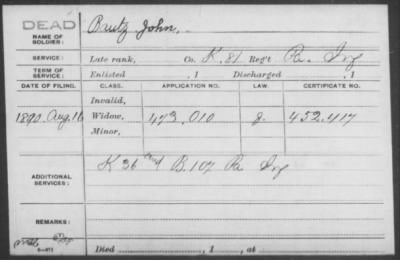 DEAD
NAME OF SOLDIER: Brutz John,
SERVICE: Late rank, Co. K. 81 Reg't Pa. Inf
TERM OF SERVICE: Enlisted , 1 Discharged , 1
DATE OF FILING. CLASS. APPLICATION NO. LAW. CERTIFICATE NO.
Invalid,
1890. Aug. 16 Widow, 473.010 452.417
Minor,
ADDITIONAL SERVICES: K 36 and B. 107 Pa Inf
REMARKS:
Died , 1 , at